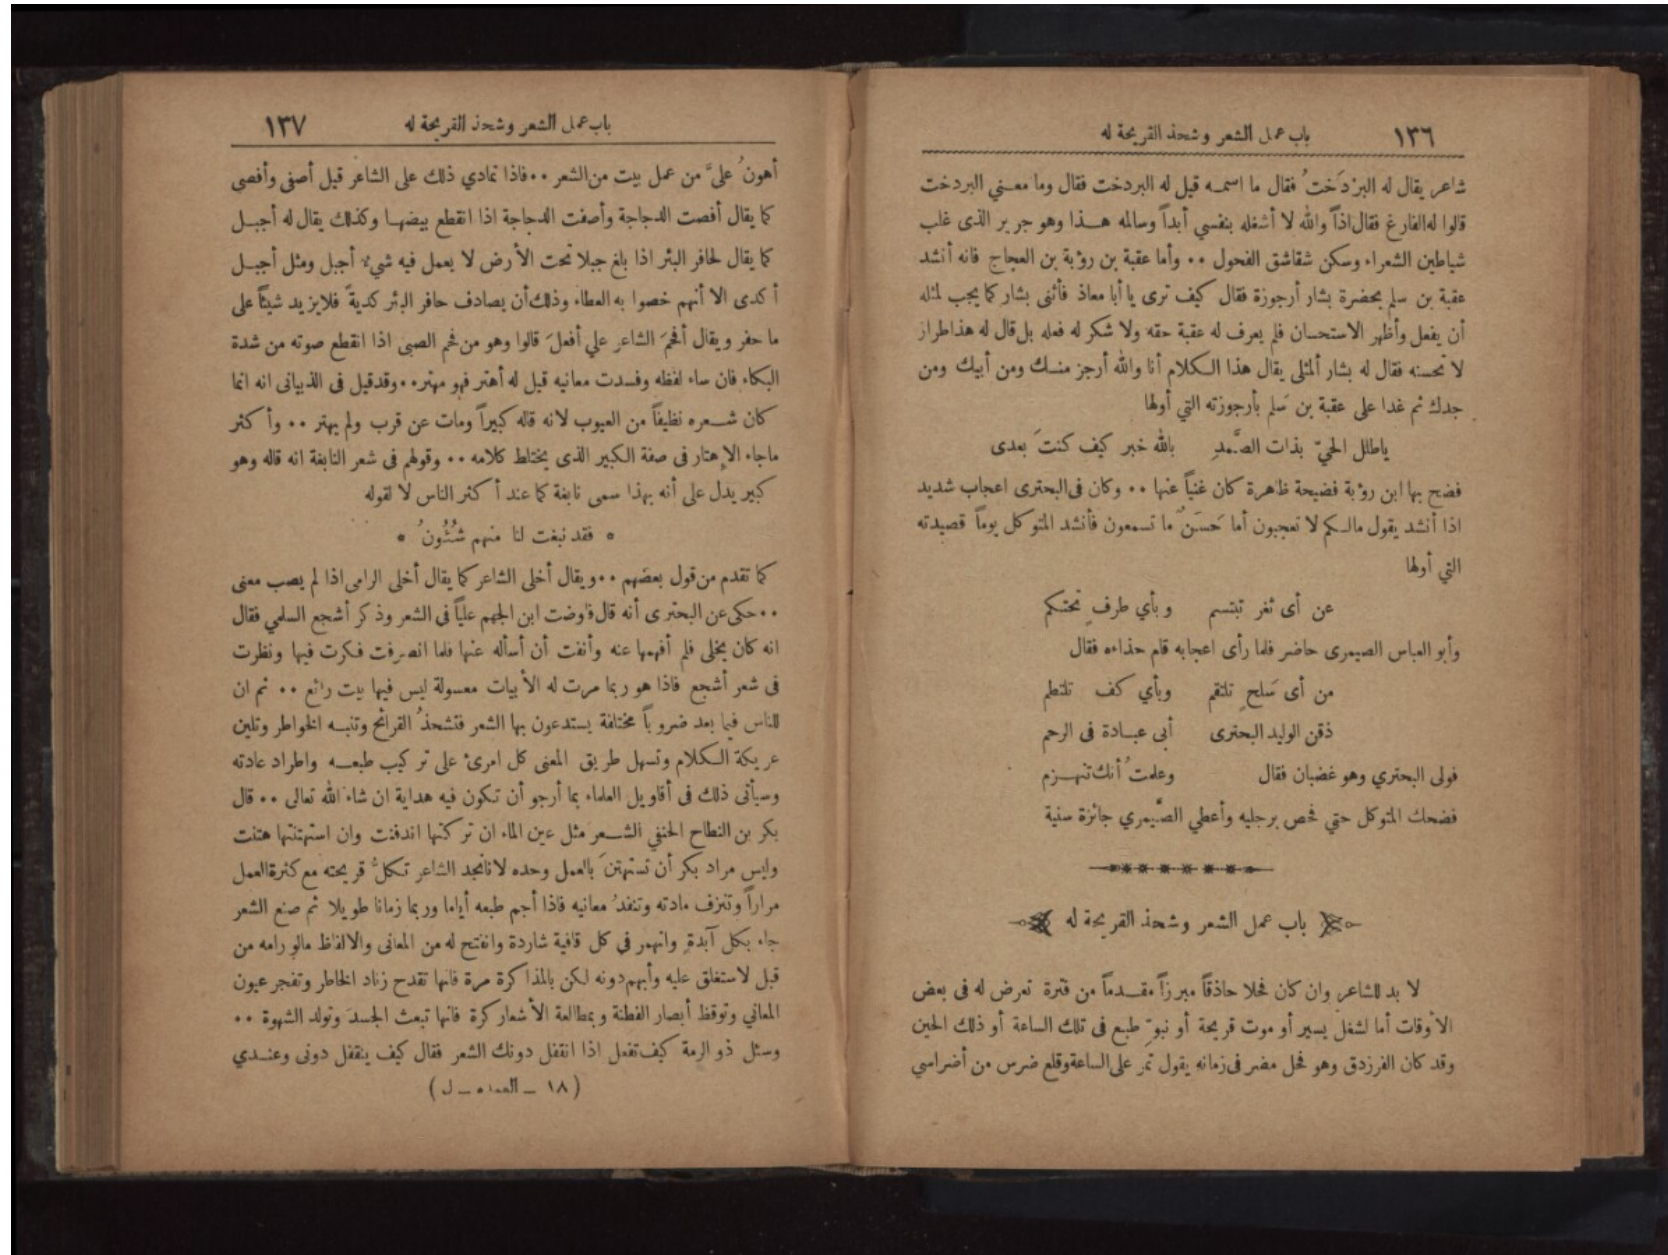 ١٣٦ باب عمل الشعر وشحذ القريحة له
شاعر يقال له البَرْدَختُ فقال ما اسمـه قيل له البردخت فقال وما معـني البردخت
قالوا له الفارغ فقال اذاً والله لا أشغله بنفسي أبداً وسالمه هـذا وهو جرير الذى غلب
شياطين الشعراء وسكن شقاشق الفحول •• وأما عقبة بن رؤبة بن العجاج فانه أنشد
عقبة بن سلم بحضرة بشار أرجوزة فقال كيف ترى يا أبا معاذ فأثنى بشار كما يجب لمثله
أن يفعل وأظهر الاستحسان فلم يعرف له عقبة حقه ولا شكر له فعله بل قال له هذا طراز
لا تحسنه فقال له بشار ألمثلى يقال هذا الـكلام أنا والله أرجز منـك ومن أبيك ومن
جدك ثم غدا على عقبة بن سَلم بأرجوزته التي أولها
ياطلل الحيّ بذات الصَّمدِ بالله خبر كيف كنتَ بعدى
فضح بها ابن رؤبة فضيحة ظاهرة كان غنياً عنها •• وكان فى البحترى اعجاب شديد
اذا أنشد يقول مالـكم لا تعجبون أما حَسَنٌ ما تسمعون فأنشد المتوكل يوماً قصيدته
التي أولها
عن أى ثغر تبتسم وبأي طرفٍ تحتـكم
وأبو العباس الصيمرى حاضر فلما رأى اعجابه قام حذاءه فقال
من أى سَلحٍ تلتقم وبأي كف تلتطم
ذقن الوليد البحترى أبى عبـادة فى الرحم
فولى البحتري وهو غضبان فقال وعلمتُ أنك تنهـزم
فضحك المتوكل حتي فحص برجليه وأعطي الصَّيمري جائزة سنية
باب عمل الشعر وشحذ القريحة له
لا بد للشاعر وان كان فحلا حاذقاً مبرزاً مقـدماً من فترة تعرض له فى بعض
الأوقات أما لشغل يسير أو موت قريحة أو نبوّ طبع فى تلك الساعة أو ذلك الحين
وقد كان الفرزدق وهو فحل مضر فى زمانه يقول تمر على الساعة وقلع ضرس من أضراسي
باب عمل الشعر وشحذ القريحة له ١٣٧
أهونُ عليَّ من عمل بيت من الشعر •• فاذا تمادي ذلك على الشاعر قيل أصفى وأفصى
كما يقال أفصت الدجاجة وأصفت الدجاجة اذا انقطع بيضهـا وكذلك يقال له أجبـل
كما يقال لحافر البئر اذا بلغ جبلا تحت الأرض لا يعمل فيه شيء أجبل ومثل أجبـل
أكدى الا أنهم خصوا به العطاء وذلك أن يصادف حافر البئر كديةً فلا يزيد شيئاً على
ما حفر ويقال أفحمَ الشاعر علي أفعلَ قالوا وهو من فحم الصبى اذا انقطع صوته من شدة
البكاء فان ساء لفظه وفسدت معانيه قيل له أهتر فهو مهتر •• وقد قيل فى الذبيانى انه انما
كان شـعره نظيفاً من العيوب لانه قاله كبيراً ومات عن قرب ولم يهتر •• وأكثر
ماجاء الإهتار فى صفة الكبير الذى يختلط كلامه •• وقولهم فى شعر النابغة انه قاله وهو
كبير يدل على أنه بهذا سمى نابغة كما عند أكثر الناس لا لقوله
* فقد نبغت لنا منهم شُئُونُ *
كما تقدم من قول بعضهم •• ويقال أخلى الشاعر كما يقال أخلى الرامى اذا لم يصب معنى
•• حكى عن البحترى أنه قال فاوضت ابن الجهم علياً فى الشعر وذكر أشجع السلمي فقال
انه كان يخلى فلم أفهمها عنه وأنفت أن أسأله عنها فلما انصرفت فـكرت فيها ونظرت
فى شعر أشجع فاذا هو ربما مرت له الأبيات مغسولة ليس فيها بيت رائع •• ثم ان
للناس فيما بعد ضروباً مختلفة يستدعون بها الشعر فتشحذُ القرائح وتنبـه الخواطر وتلين
عريكة الـكلام وتسهل طريق المعنى كل امرئ على تركيب طبعـه واطراد عادته
وسيأتى ذلك فى أقاويل العلماء بما أرجو أن تـكون فيه هداية ان شاء الله تعالى •• قال
بكر بن النطاح الحنفي الشـعر مثل عين الماء ان تركتها اندفنت وان استهتنتها هتنت
وليس مراد بكر أن تستهتنَ بالعمل وحده لانا نجد الشاعر تـكلُّ قريحته مع كثرة العمل
مراراً وتنزف مادته وتنفدُ معانيه فاذا أجم طبعه أياما وربما زمانا طويلا ثم صنع الشعر
جاء بكل آبدةٍ وانهمر في كل قافية شاردة وانفتح له من المعانى والالفاظ مالو رامه من
قبل لاستغلق عليه وأبهم دونه لـكن بالمذاكرة مرة فانها تقدح زناد الخاطر وتفجر عيون
المعاني وتوقظ أبصار الفطنة وبمطالعة الأشعار كرة فانها تبعث الجسدَ وتولد الشهوة ••
وسئل ذو الرمة كيف تفعل اذا انقفل دونك الشعر فقال كيف ينقفل دونى وعنـدي
(١٨ ــ العمده ــ ل)